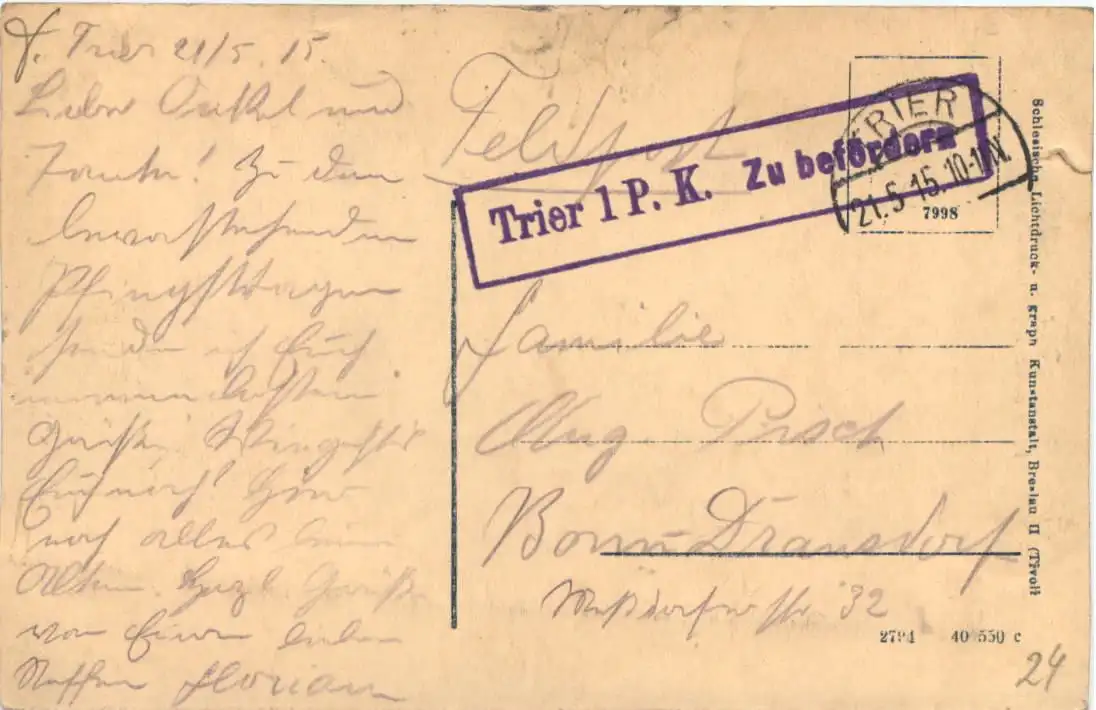 Trier 21/5. 15.
Liebe Onkel und
Tante! Zu den
bevorstehenden
Pfingsttagen
sende ich Euch
die besten
Grüße. Wie geht's
Euch noch? Hier
noch alles beim
Alten. Herzl. Grüße
von Eurem lieben
Neffen Florian
Feldpost
Trier 1 P. K. Zu befördern
TRIER
21.5.15.10-11N.
7998
Familie
Aug. Pesch
Bonn-Dransdorf
Meßdorferstr. 32
2794 40 550 c
24
Schlesische Lichtdruck- u. graph Kunstanstalt, Breslau II (Tivoli